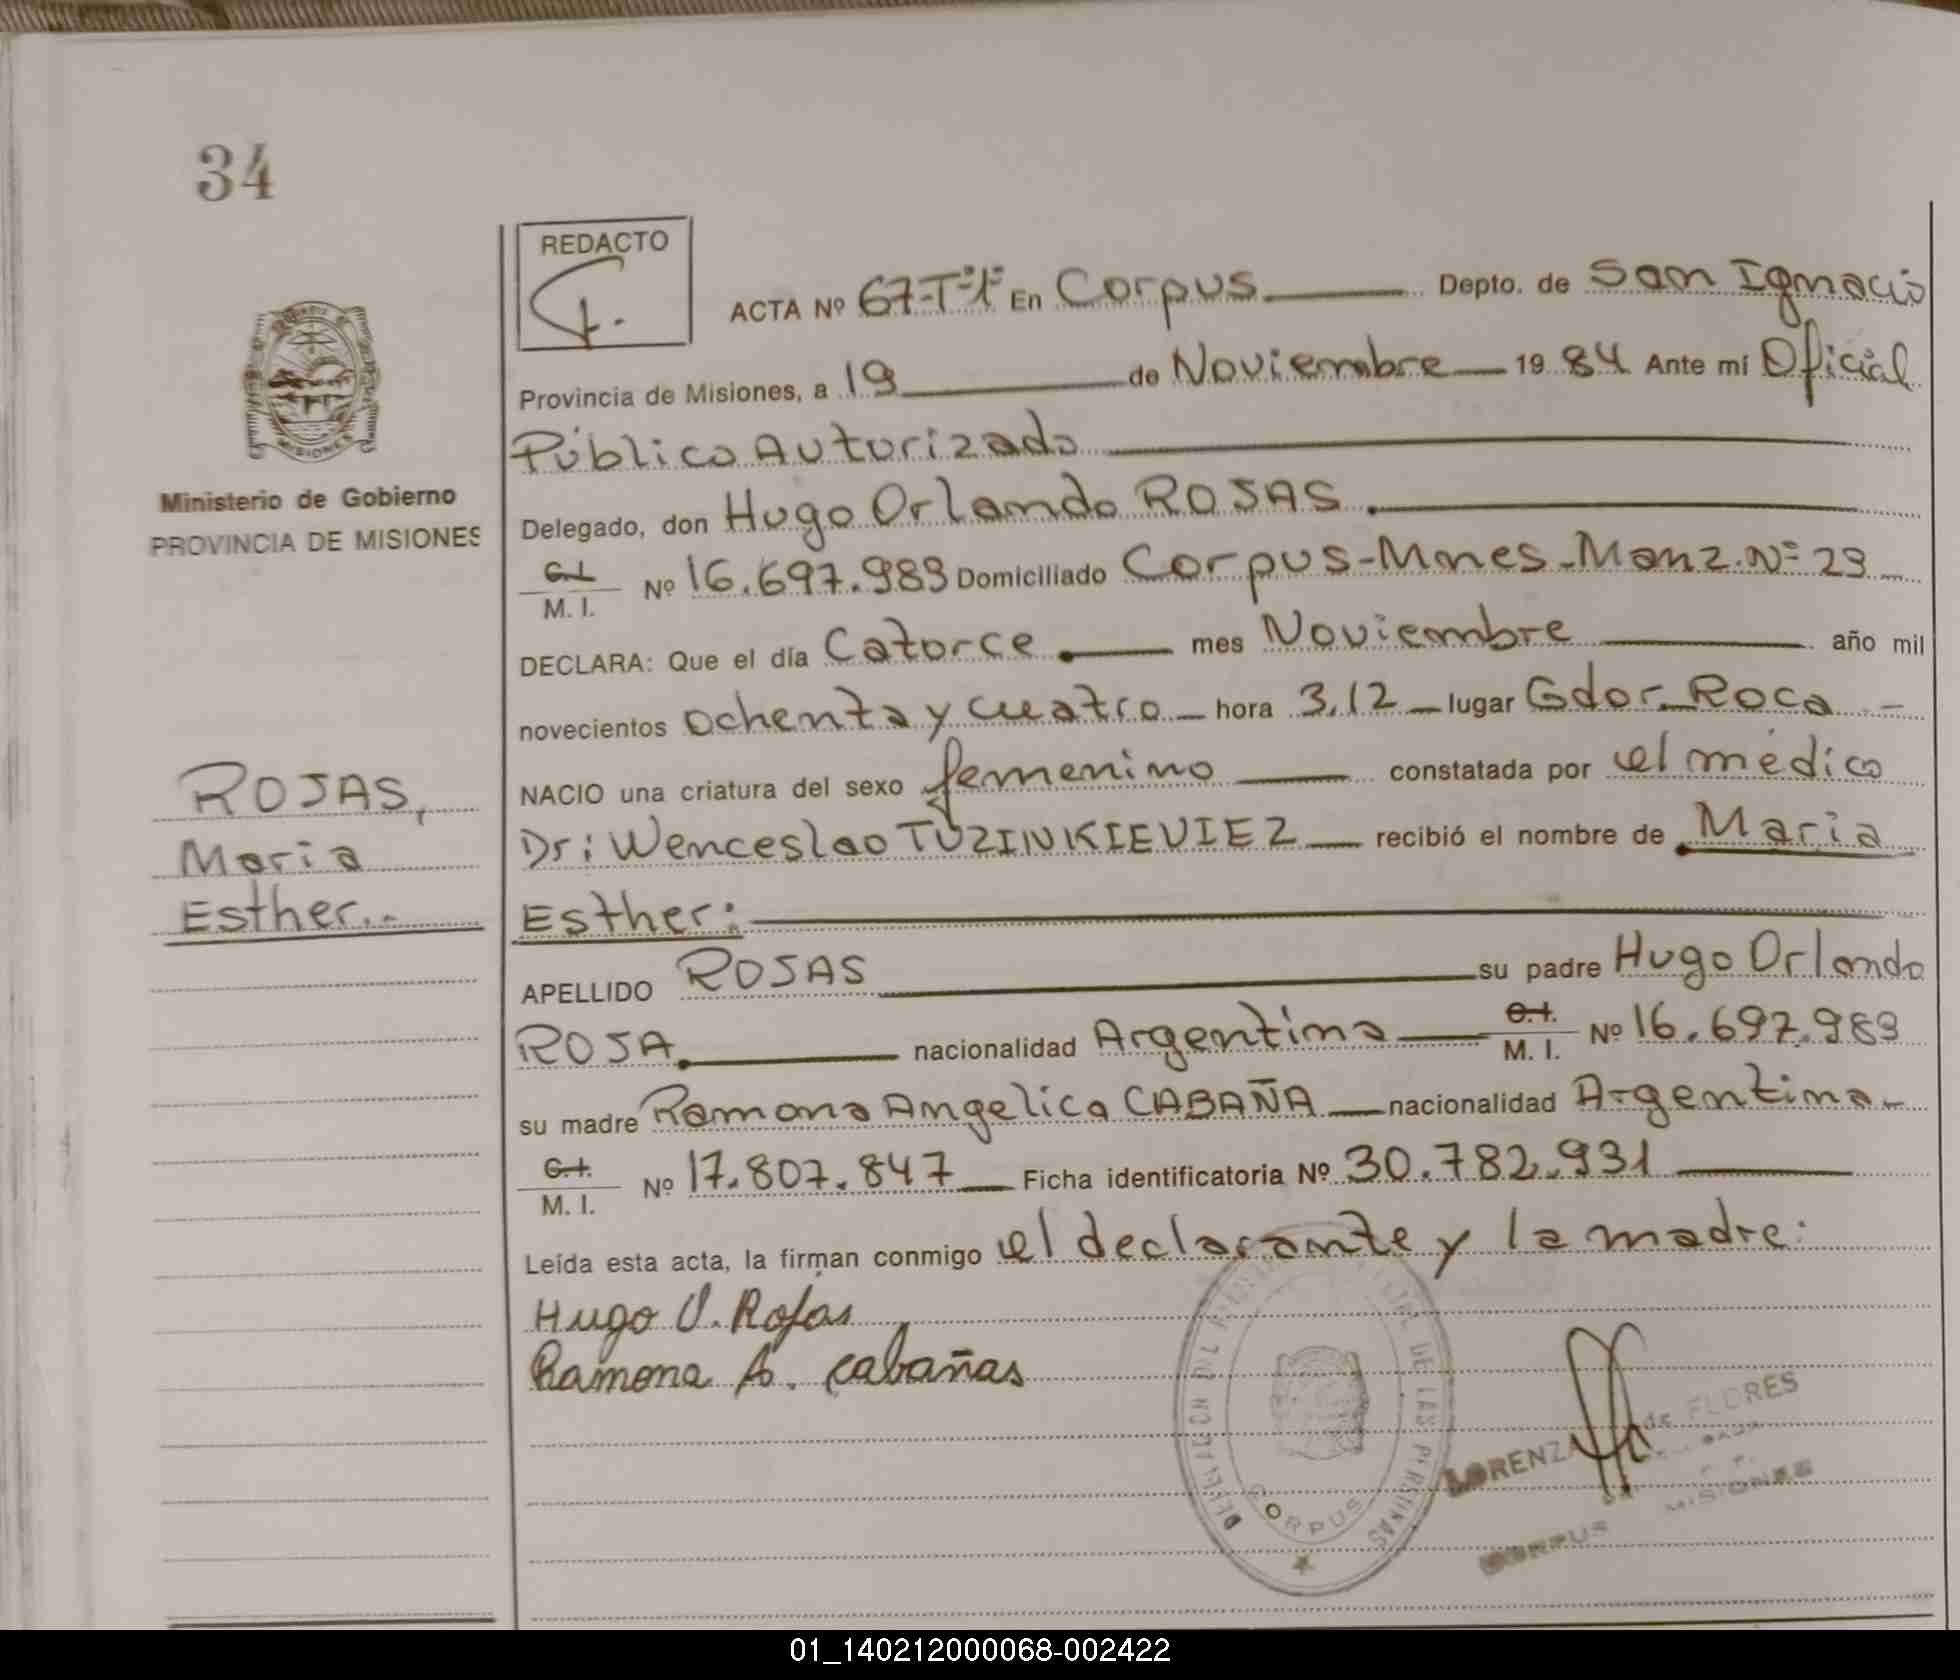 34
REDACTO
ACTA Nº 67-Tº1º En Corpus Depto. de San Ignacio
Provincia de Misiones, a 19 de Noviembre 1984 Ante mí Oficial
Público Autorizado
Ministerio de Gobierno
PROVINCIA DE MISIONES
Delegado, don Hugo Orlando ROJAS.
C.I. M. I. Nº 16.697.989 Domiciliado Corpus-Mnes-Manz.Nº 29
DECLARA: Que el día Catorce mes Noviembre año mil
novecientos ochenta y cuatro hora 3,12 lugar Gdor. Roca
NACIO una criatura del sexo femenino constatada por el médico
Dr: Wenceslao TUZINKIEVIEZ recibió el nombre de Maria
Esther:
ROJAS,
Maria
Esther..
APELLIDO ROJAS su padre Hugo Orlando
ROJA. nacionalidad Argentina C.I. M. I. Nº 16.697.989
su madre Ramona Angelica CABAÑA nacionalidad Argentina
C.I. M. I. Nº 17.807.847 Ficha identificatoria Nº 30.782.931
Leída esta acta, la firman conmigo el declarante y la madre:
Hugo O. Rojas
Ramona A. Cabañas
DELEGACION DEL DE LAS PERSONAS
CORPUS
LORENZA de FLORES
CORPUS MISIONES
MISIONES
01_140212000068-002422